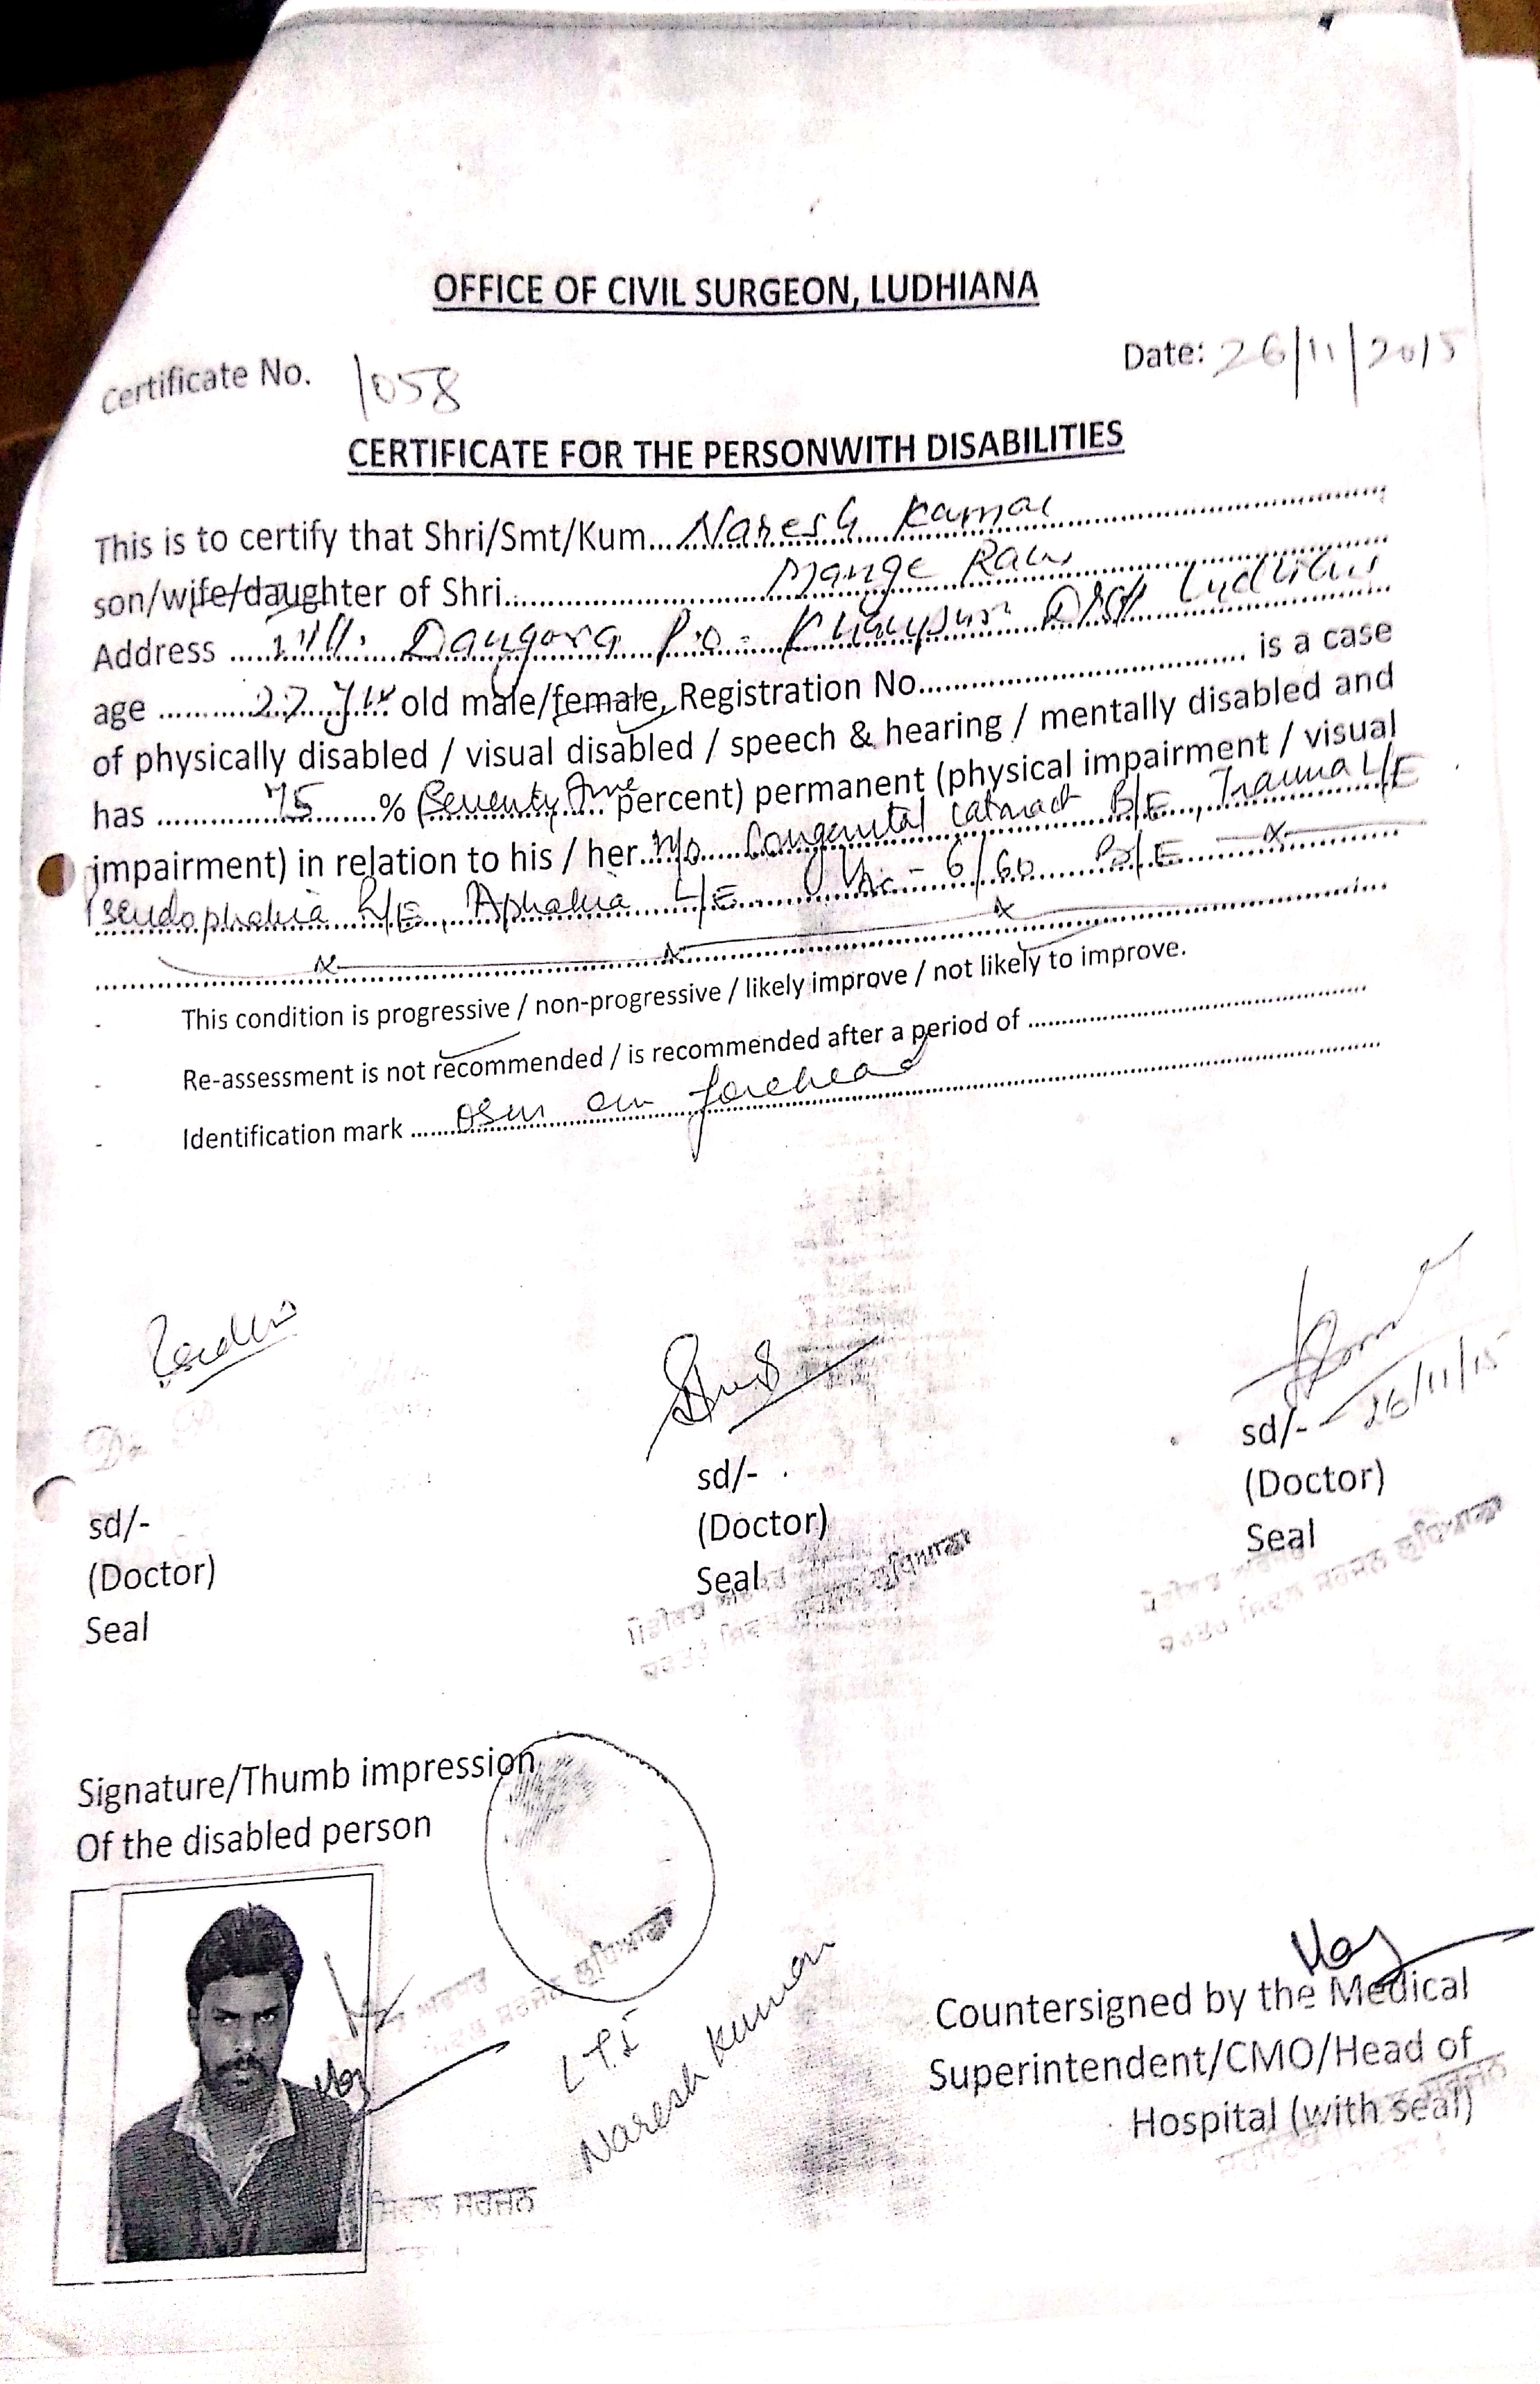 OFFICE OF CIVIL SURGEON, LUDHIANA
Certificate No. 1058
Date: 26/11/2015
CERTIFICATE FOR THE PERSONWITH DISABILITIES
This is to certify that Shri/Smt/Kum... Naresh Kumar
son/wife/daughter of Shri... Mange Ram
Address ... Vill. Dangora P.O - Khanpur Distt Ludhiana
age ... 27 yrs old male/female, Registration No... is a case
of physically disabled / visual disabled / speech & hearing / mentally disabled and
has ... 75 ...% (Seventy five percent) permanent (physical impairment / visual
impairment) in relation to his / her. Congenital cataract B/E, Trauma L/E
Pseudophakia R/E, Aphakia L/E. - 6/60 B/E
- This condition is progressive / non-progressive / likely improve / not likely to improve.
- Re-assessment is not recommended / is recommended after a period of ...
- Identification mark ... on forehead
26/11/15
sd/-
(Doctor)
Seal
sd/-
(Doctor)
Seal
sd/-
(Doctor)
Seal
Signature/Thumb impression
Of the disabled person
LTI
Naresh Kumar
Countersigned by the Medical
Superintendent/CMO/Head of
Hospital (with seal)
ਸਿਵਲ ਸਰਜਨ